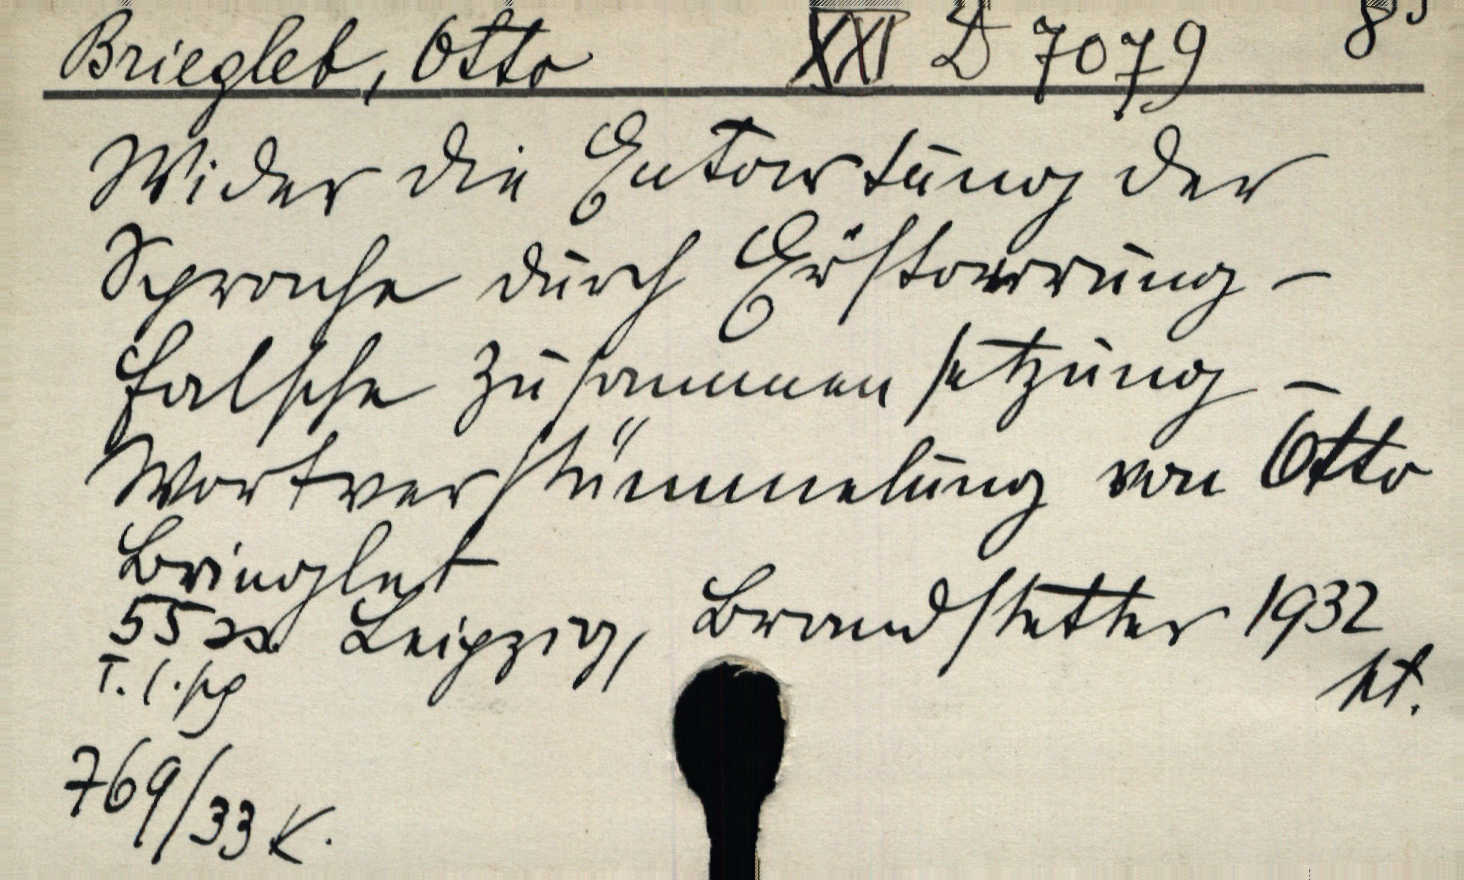 Briegleb, Otto XXI D 7079 8°
Wider die Entartung der
Sprache durch Erstarrung -
falsche Zusammensetzung -
Wortverstümmelung von Otto
Briegleb
55 SS. Leipzig, Brandstetter 1932
kt.
769/33 K.